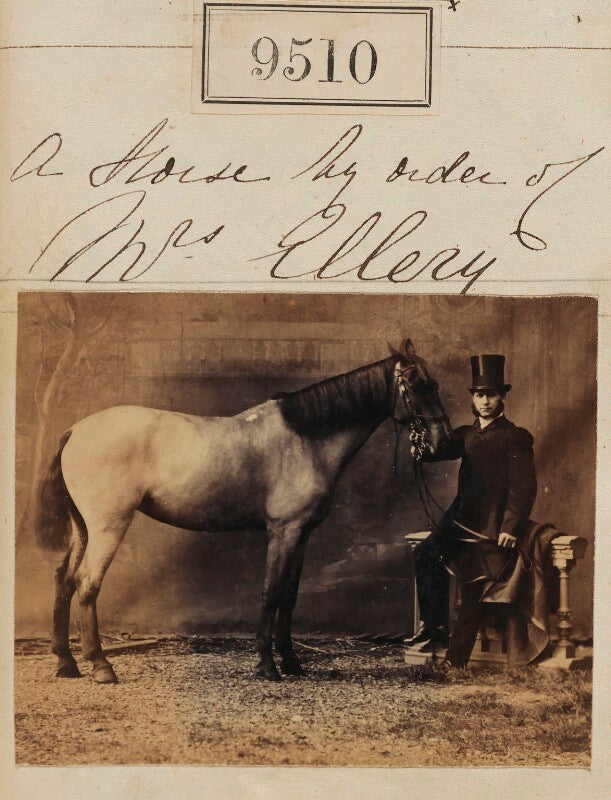 9510
A Horse by order of
Mrs Ellery